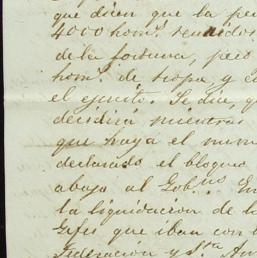 que dicen que la pe
4000 hom.s rendidos
de la fortuna, pero
hom.s de tropa y
el ejercito. Se dia, q
decidira mientras
que haya el
declarado el bloqueo
abajo al Gob.no En
la liquidación de lo
Gefes que iban con
Federación y S.ta An